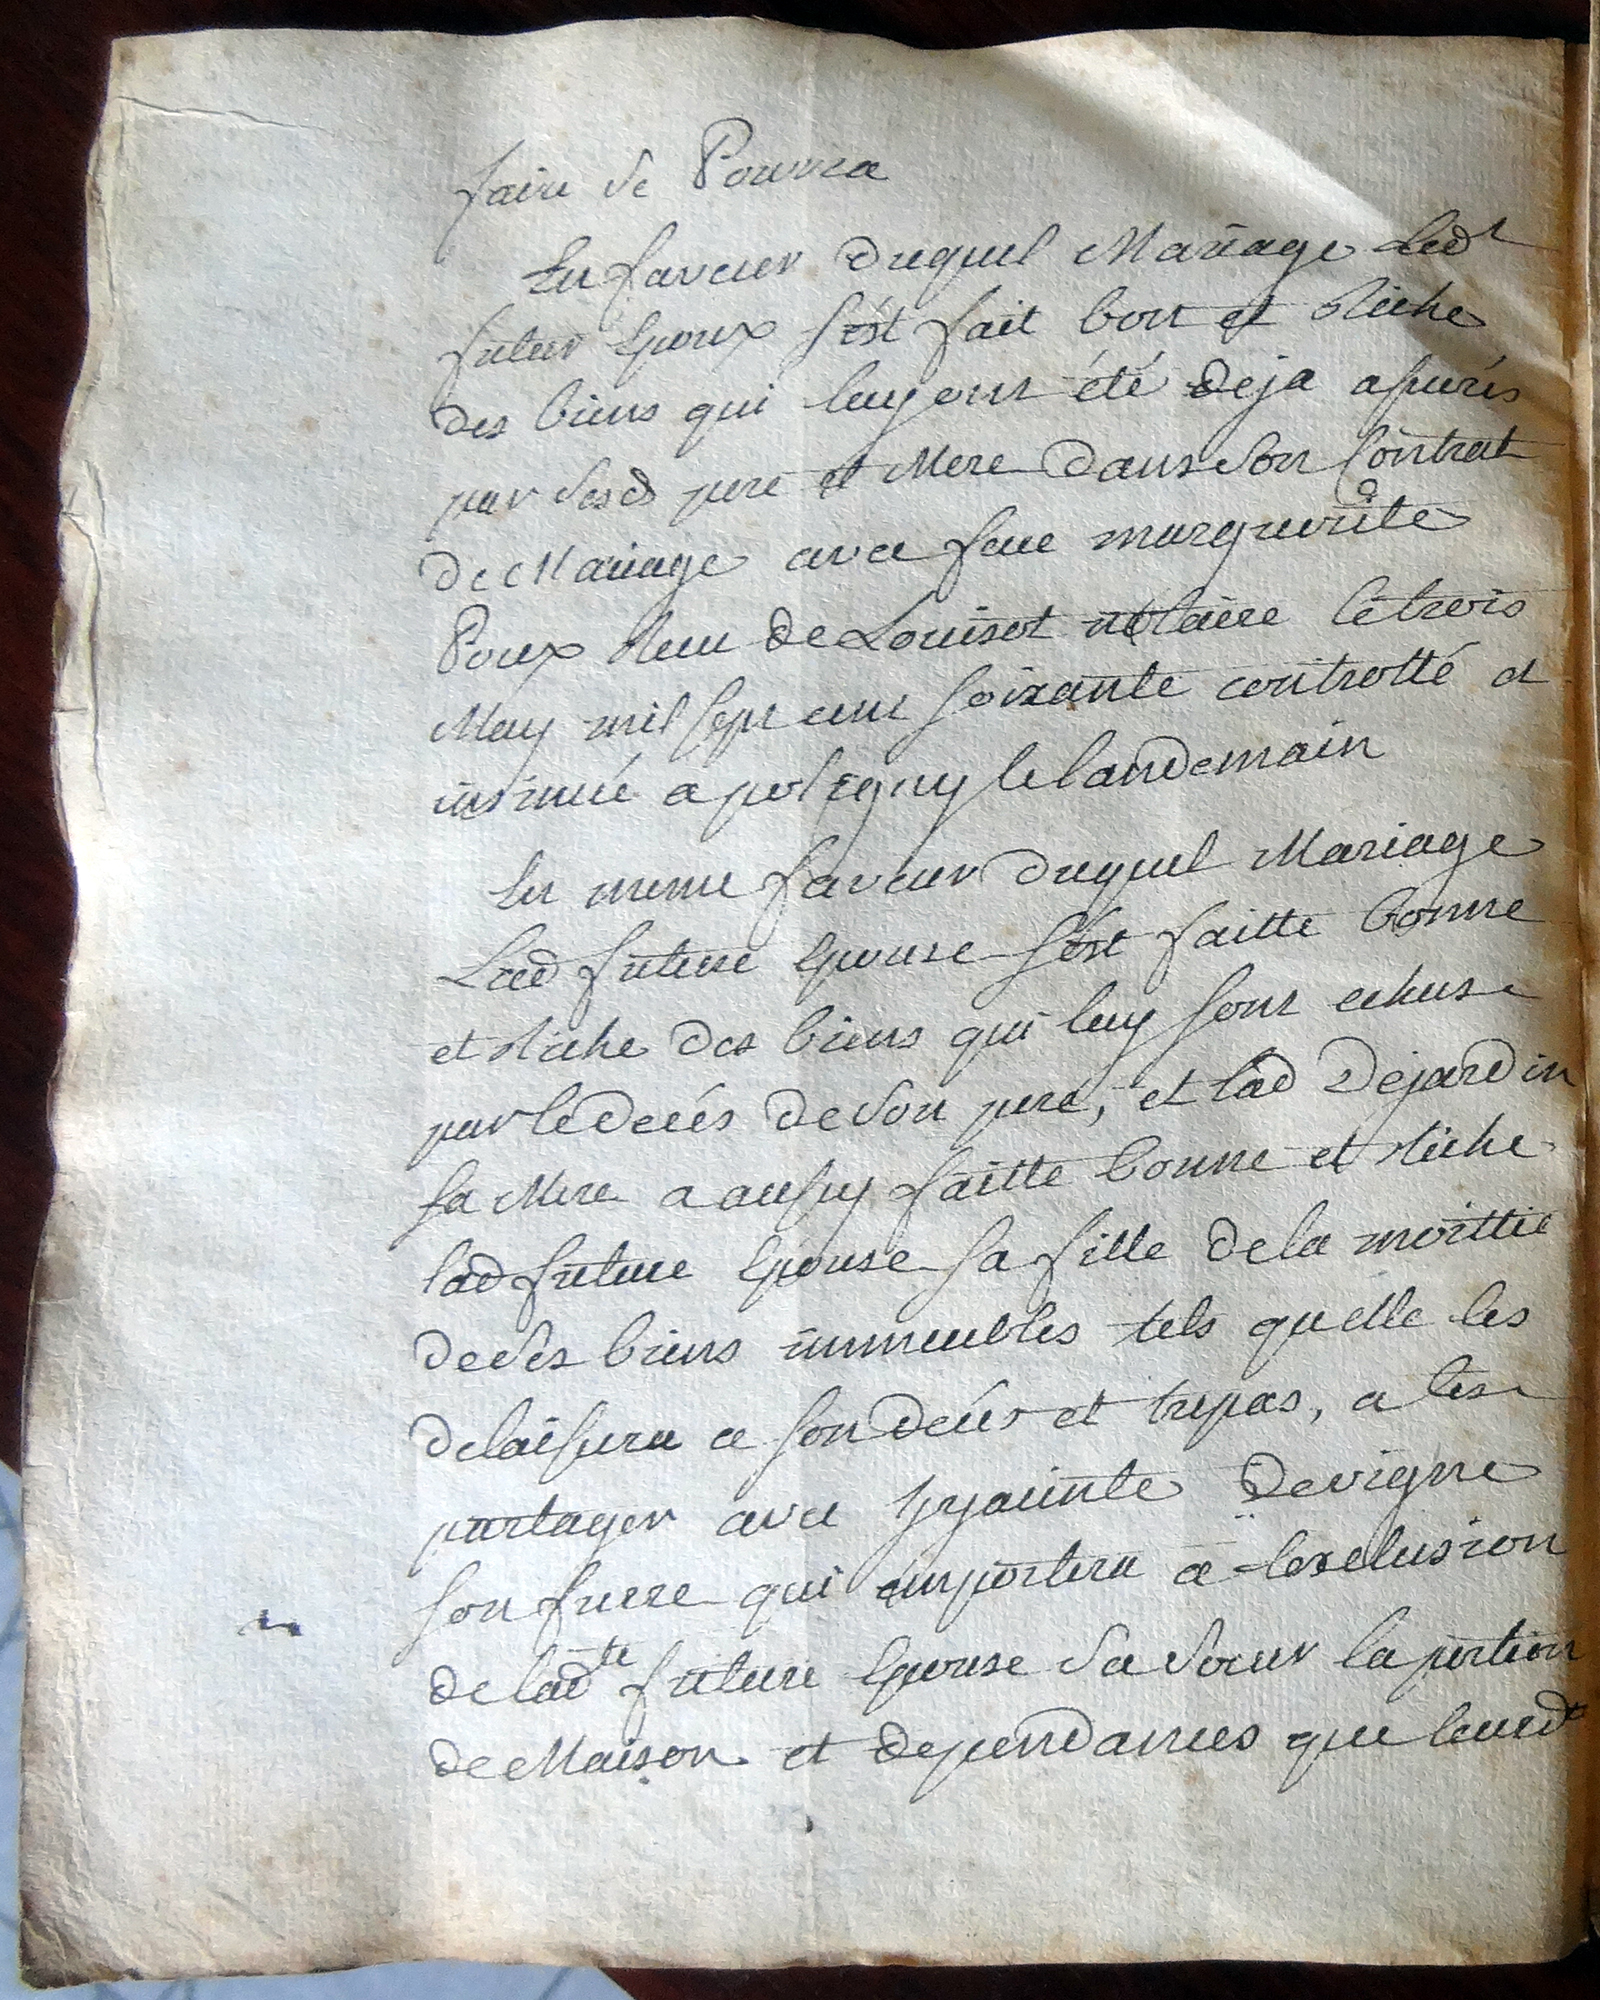 faire se Pourra
En faveur duquel Mariage led<sup>t</sup>
futur Epoux s'est fait bon et Riche
des biens qui luy ont été deja assurés
par sesd pere et Mere dans son Contrat
de Mariage avec feue marguerite
Poux Recu de Louisot notaire le trois
May mil sept cent soixante controllé et
insinué a poligny le landemain
En meme faveur duquel Mariage
Lad future Epouse s'est faitte bonne
et Riche des biens qui luy sont echus
par le decés de son pere, et lad Dejardin
sa Mere a aussy faitte bonne et Riche
lad future Epouse sa fille de la moittié
de ses biens immeubles tels quelle les
delaissera a son decés et trepas, a les
partager avec hyacinte Devigne
son frere qui emportera a lexclusion
de lad<sup>te</sup> future Epouse sa soeur la portion
de Maison et dependances que leurd<sup>t</sup>